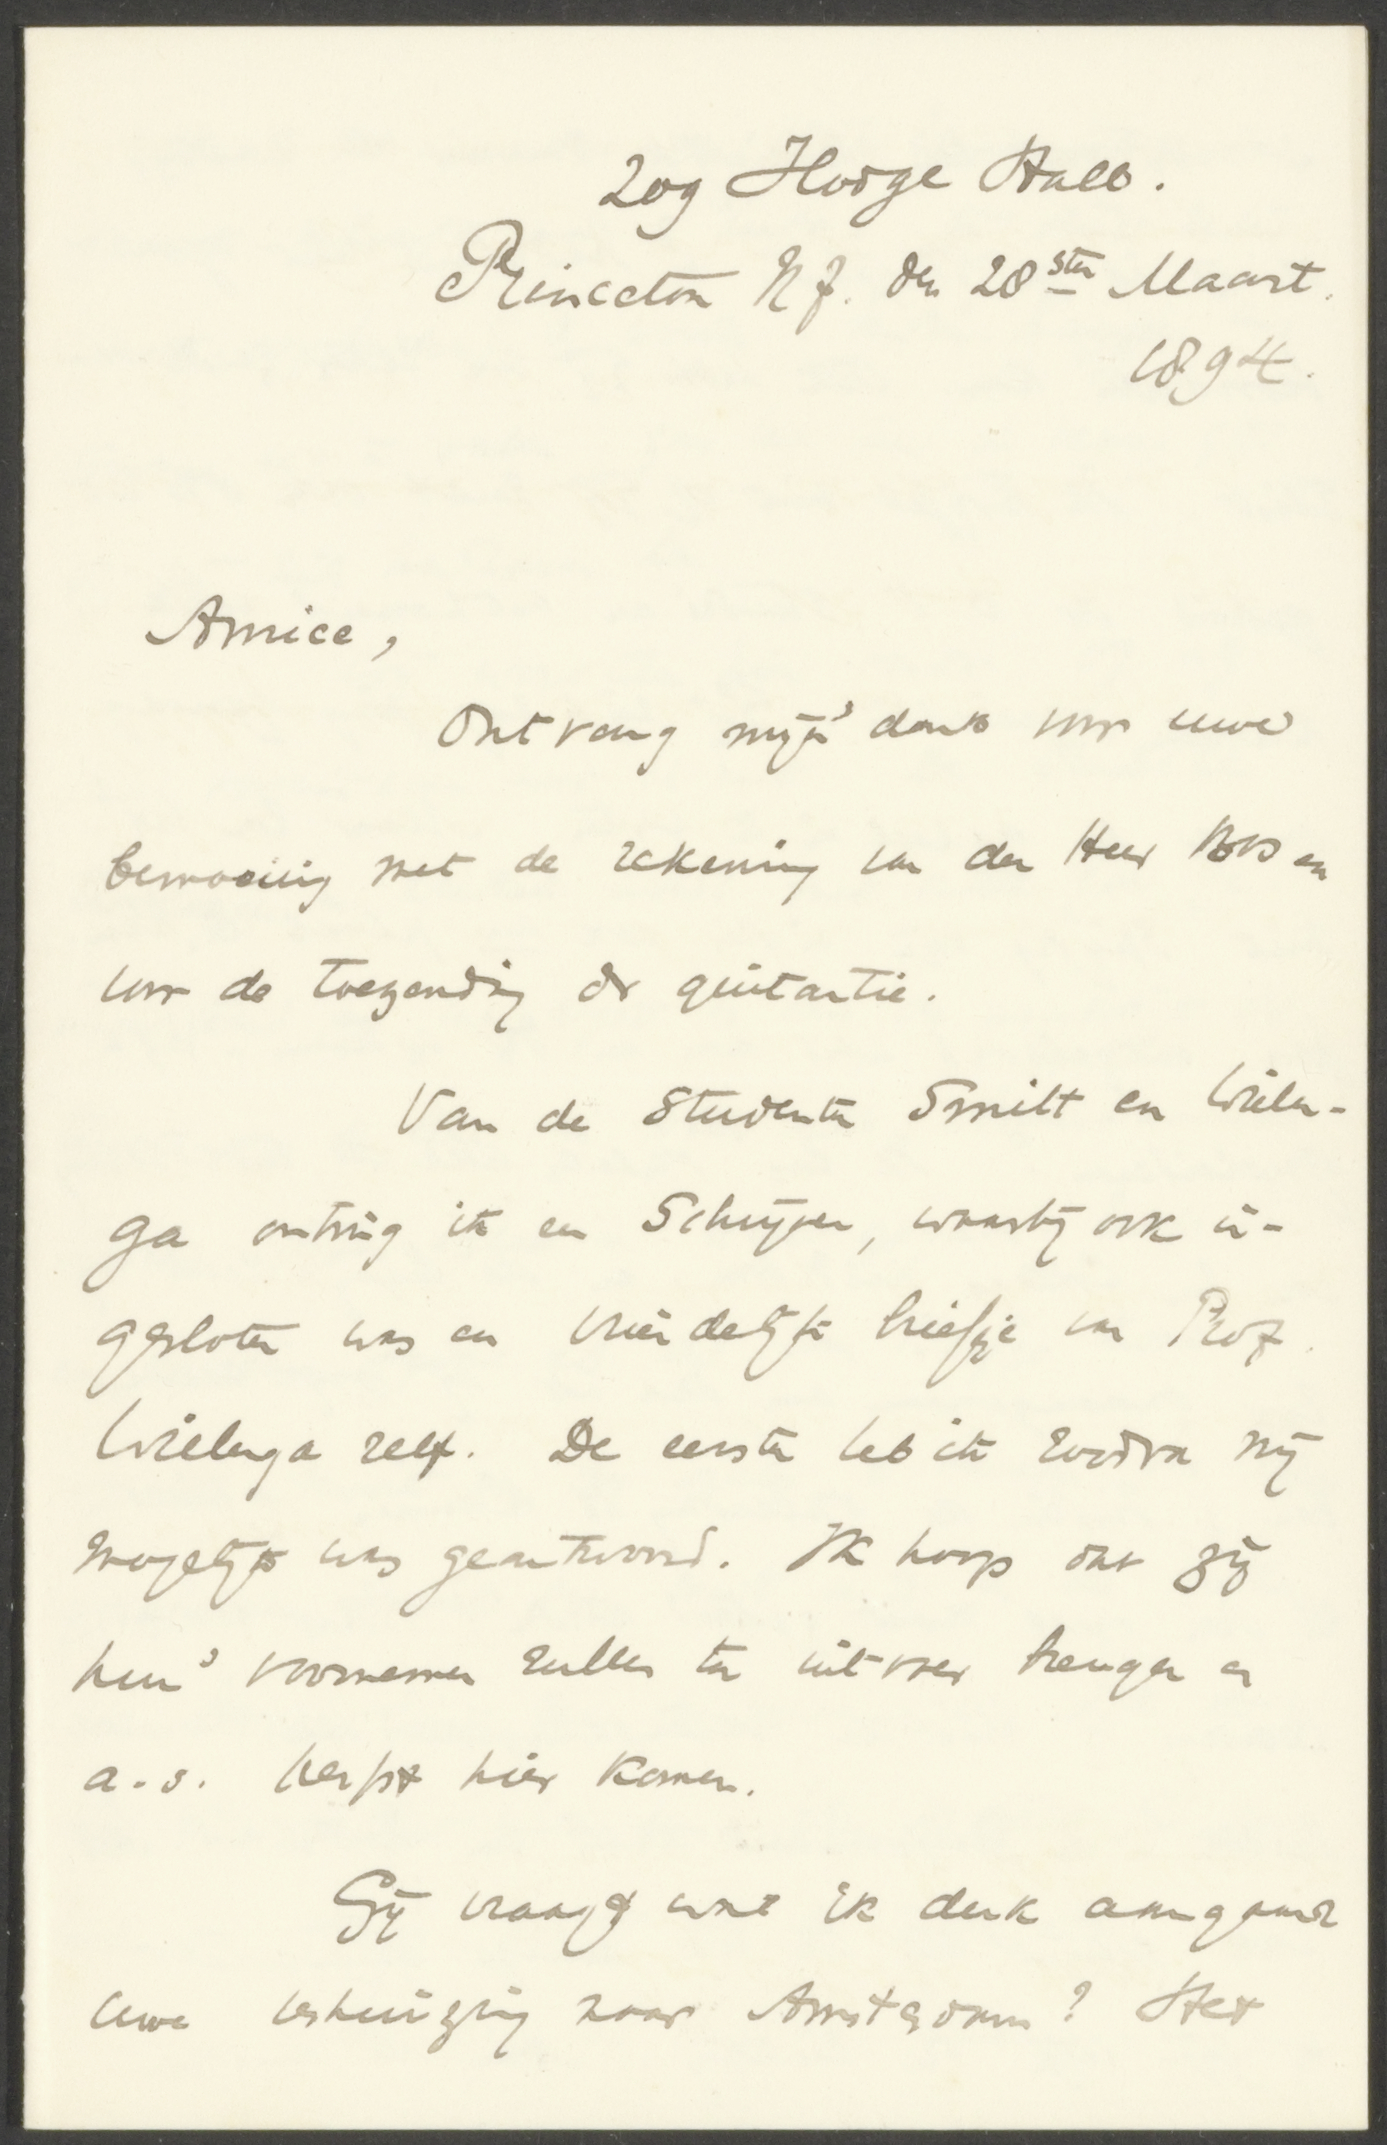 209 Hodge Hall.
Princeton N J. den 28sten Maart.
1894.
Amice,
Ontvang mijn dank voor uwe
bemoeiing met de rekening van den Heer Bos en
voor de toezending der quitantie.
Van de studenten Smilt en Wielen-
ga ontving ik een schrijven, waarbij ook in-
gesloten was een vriendelijk briefje van Prof.
Wielenga zelf. De eersten heb ik zoodra mij
mogelijk was geantwoord. Ik hoop dat zij
hun voornemen zullen ten uitvoer brengen en
a.s. herfst hier komen.
Gij vraagt wat ik denk aangaande
uwe verhuizing naar Amsterdam? Het